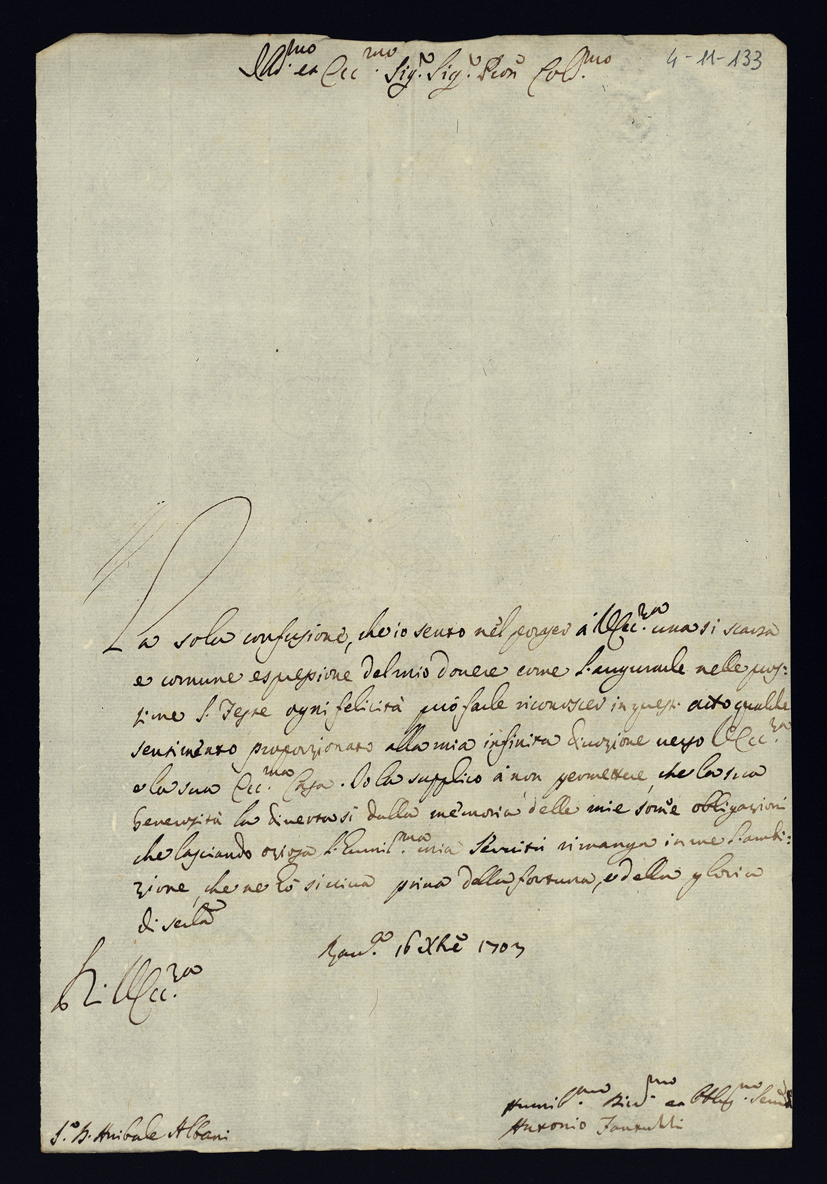 Ill.mo et Ecc.mo Sig.r Sig.r Pron Col.mo
4-11-133
La sola confusione, che io sento nel porger à V. Ecc.za una si scarsa
e comune espressione del mio douere come l'augurarle nelle pros:
sime S. Feste ogni felicità può farle riconoscer in quest' atto qualche
sentimento proporzionato alla mia infinita diuozione uerso V. Ecc.za
e la sua Ecc.ma Casa. Io la supplico à non permettere, che la sua
Generosità la diuerta si dalla memoria delle mie some obligazioni
che lasciando oziosa l'Humil.ma mia Seruitù rimanga in me l'ambi:
zione, che ne hò si uiua priua della fortuna, e della gloria
di seruirla
16 Xbre 1703
Di V. Ecc.za
Humil.mo Diu.mo et Obblig.mo
Antonio
S.r D. Anibale Albani